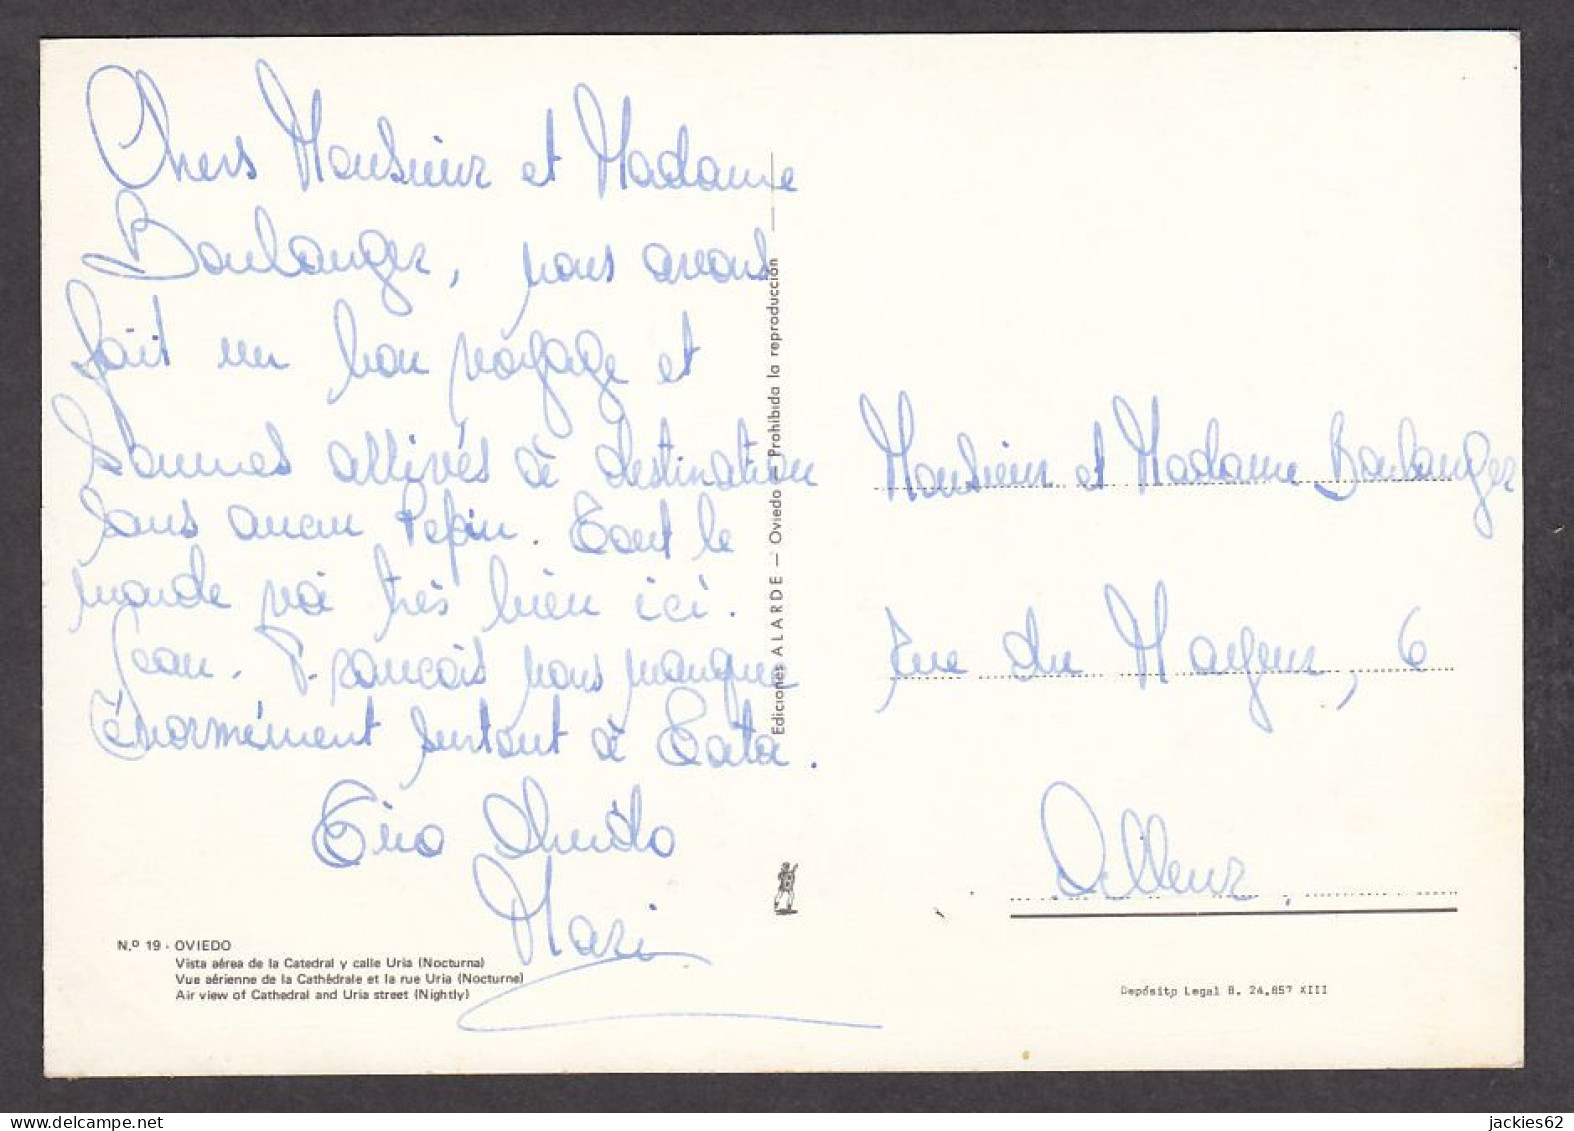 Chers Monsieur et Madame
Boulanger, nous avons
fait un bon voyage et
sommes arrivés à destination
sans aucun Pepin. Tout le
monde va très bien ici.
Jean. François nous manque
énormément surtout à Tata.
Tino
Mari
Monsieur et Madame Boulanger
Rue du Mayeur, 6
Alleur,
Ediciones ALARDE — Oviedo — Prohibida la reproducción
N.º 19 - OVIEDO
Vista aérea de la Catedral y calle Uria (Nocturna)
Vue aérienne de la Cathédrale et la rue Uria (Nocturne)
Air view of Cathedral and Uria street (Nightly)
Depósito Legal B. 24.857 XIII
jackies62